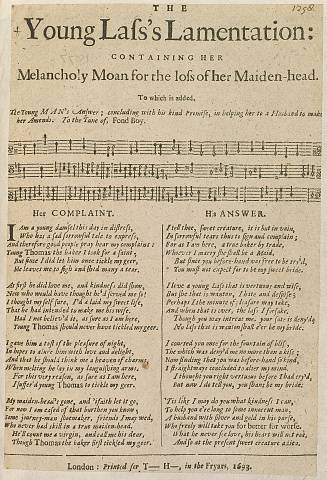 THE
1258.
Young Laſs's Lamentation:
CONTAINING HER
Melancholy Moan for the loſs of her Maiden-head.
To which is added,
The Young MAN's Answer; concluding with his kind Promiſe, in helping her to a Husband to make
her Amends. To the Tune of, Fond Boy.
Her COMPLAINT.
I Am a young damſel this day in diſtreſs,
Who has a ſad ſorrowful tale to expreſs,
And therefore good people pray hear my complaint:
Young Thomas the baker I took for a ſaint,
But ſince I did let him once tickle my geer,
He leaves me to ſigh and ſhed many a tear.
At firſt he did love me, and kindneſs did ſhow,
Now who would have thought he'd ſerved me ſo?
I thought my ſelf ſure, I'd a laid my ſweet life,
That he had intended to make me his wife.
Had I not believ'd it, as ſure as I am here,
Young Thomas ſhould never have tickled my geer.
I gave him a taſt of the pleaſure of night,
In hopes to allure him with love and delight,
And that he ſhould think me a heaven of charms,
When melting he lay in my languiſhing arms,
For this very reaſon, as ſure as I am here,
I ſuffer'd young Thomas to tickle my geer.
My maiden-head's gone, and 'ifaith let it go,
For now I am eaſed of that burthen you know;
Some journey-man ſhoomaker, friends I may wed,
Who never had skill in a true maiden-head.
He'll count me a virgin, and call me his dear,
Though Thomas the baker firſt tickled my geer.
His ANSWER.
I tell thee, ſweet creature, it is but in vain,
In ſorrowful tears thus to ſigh and complain;
For as I am here, a true baker by trade,
Whoever I marry ſhe ſhall be a Maid,
But ſince you before-hand was free to be try'd,
You muſt not expect for to be my ſweet bride.
I love a young Laſs that is vertuous and wiſe,
But ſhe that is wanton, I hate and deſpiſe;
Perhaps I the minute of pleaſure may take,
and when that is over, the laſs I forſake,
Though you may intreat me, your ſuit is deny'd
No laſs that is wanton ſhall e'er be my bride.
I courted you once for the fountain of bliſs,
The which was deny'd me no more than a kiſs;
Now finding that you was before-hand ſo kind,
I ſtraightways concluded to alter my mind.
I thought you right vertuous before I had try'd,
But now I do tell you, you ſhant be my bride:
'Tis like I may do you what kindneſs I can,
To help you e'er long to ſome innocent man,
A husband with ſilver and gold in his purſe,
Who freely will take you for better for worſe.
What he never ſees love, his heart will not rue,
And ſo at the preſent ſweet creature adieu.
London: Printed for T— H—, in the Fryars, 1693.